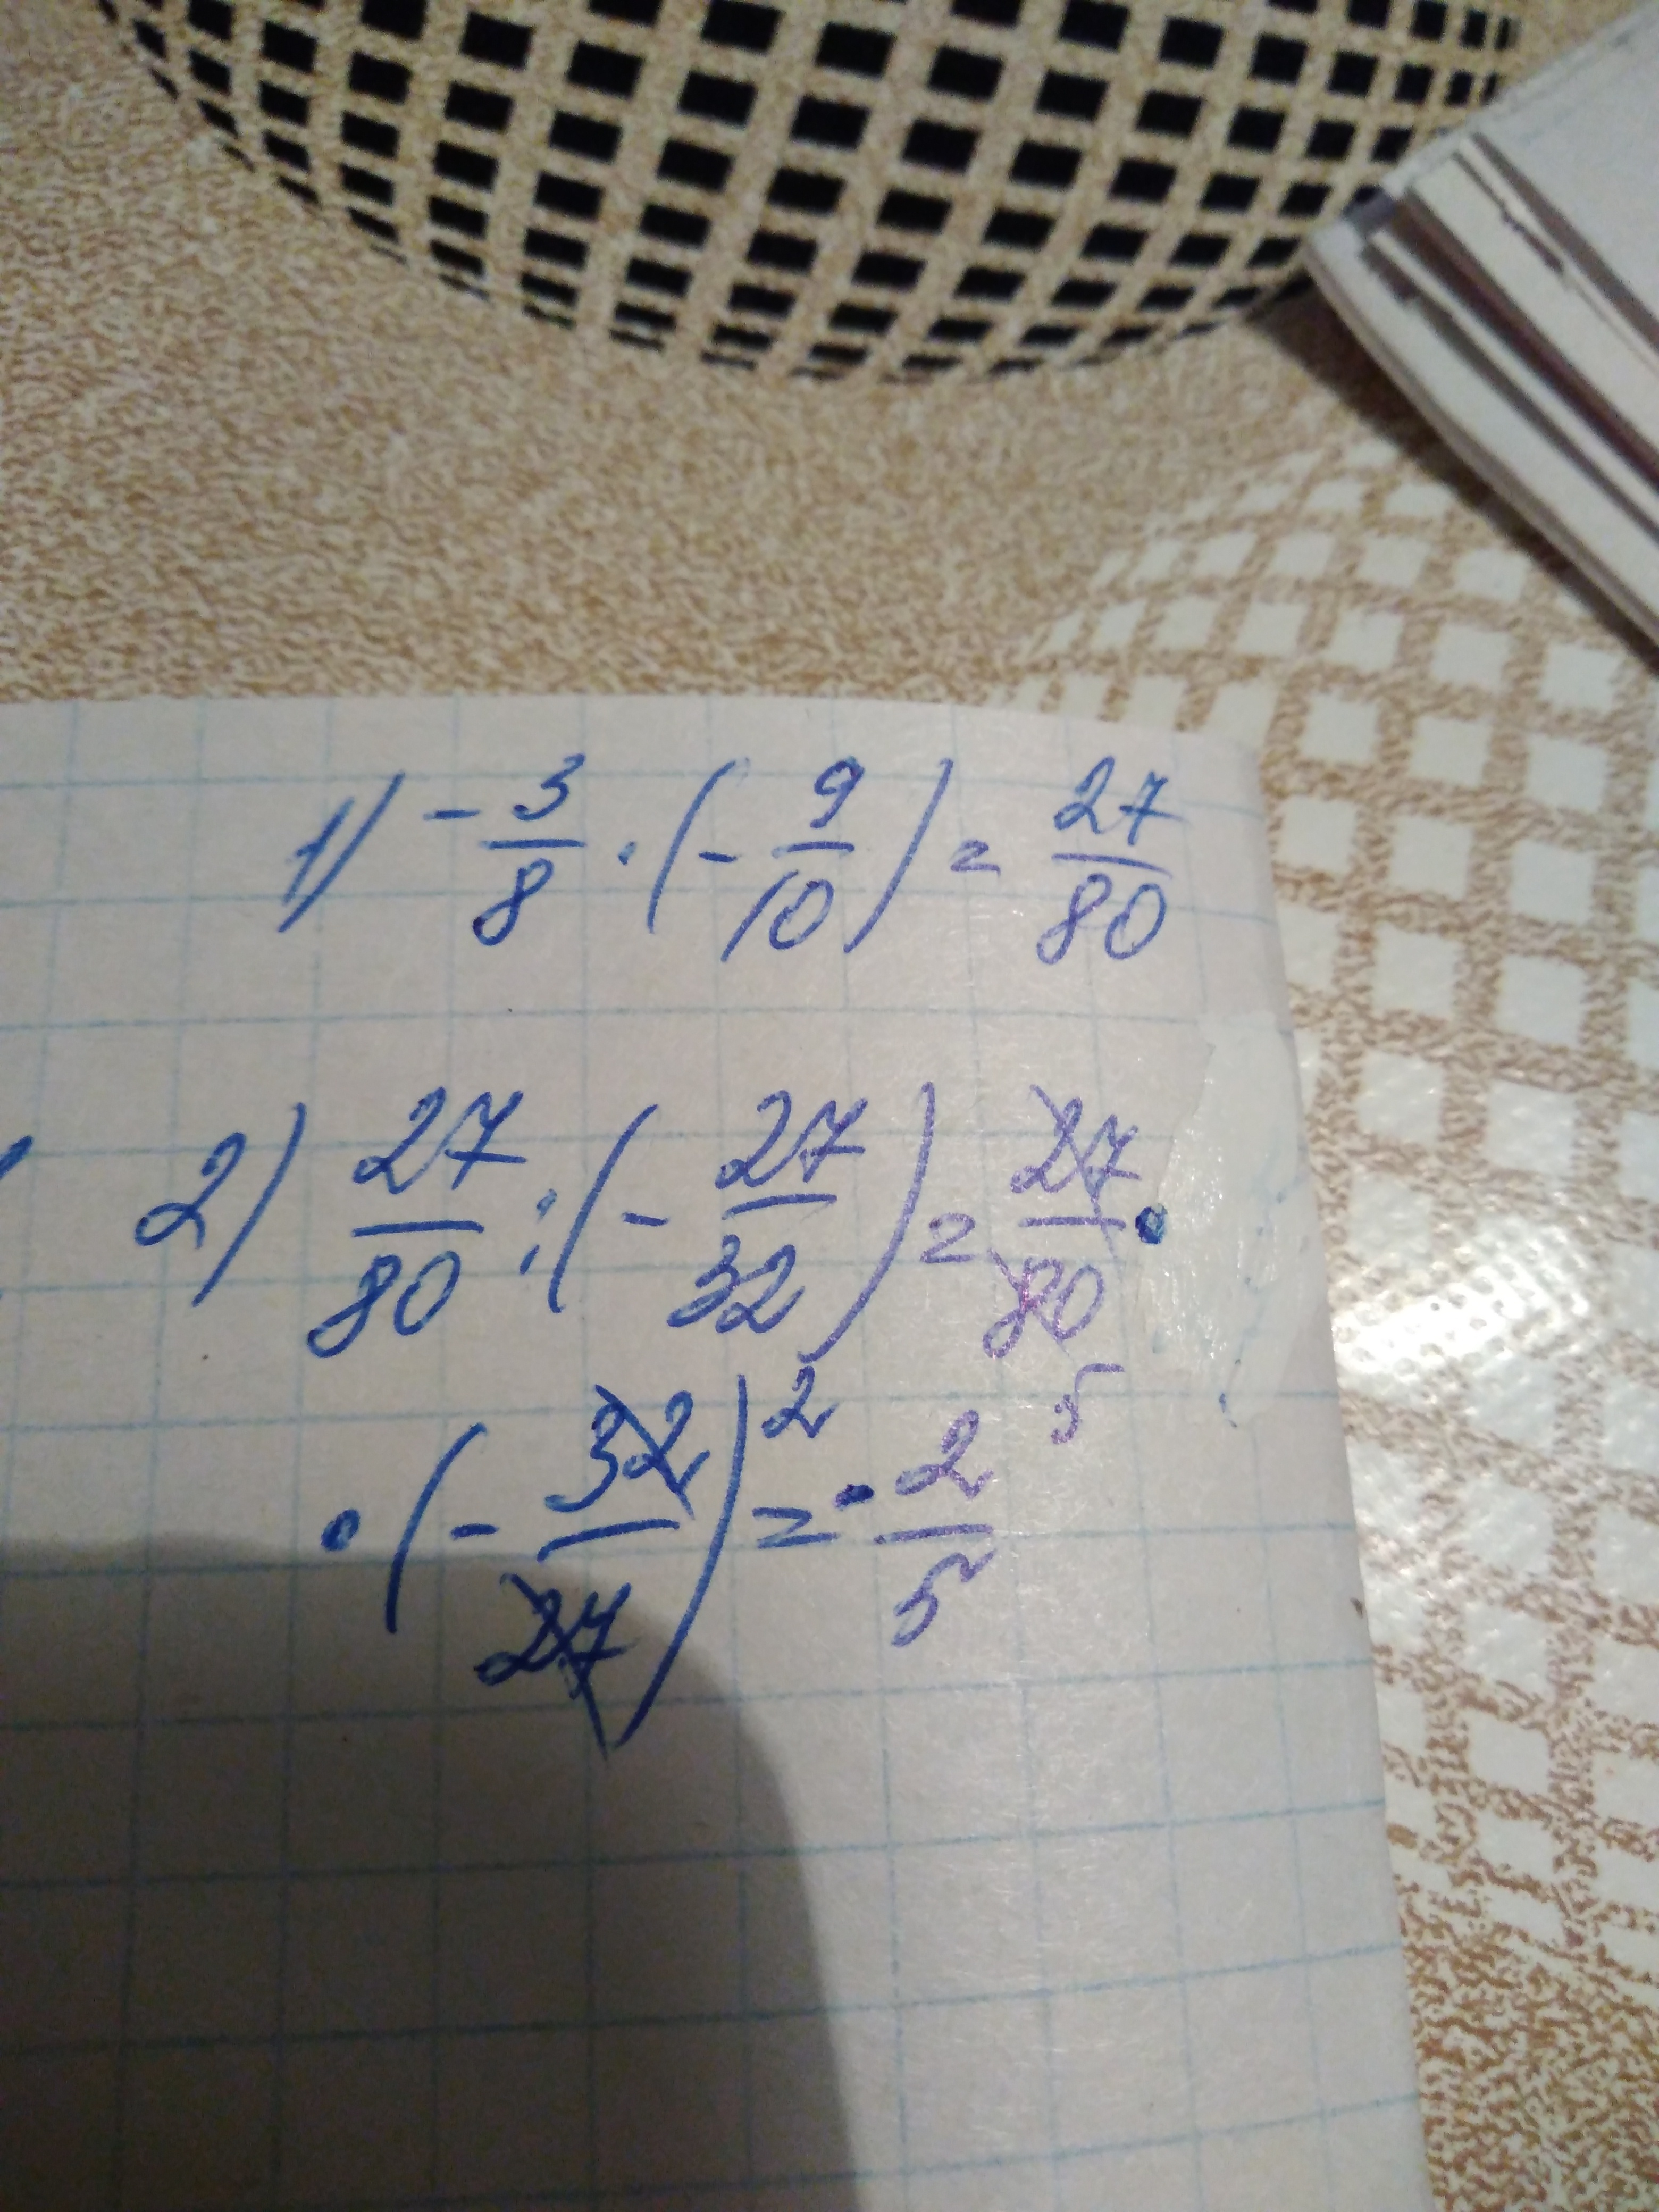 1) -3/8 · (-9/10) = 27/80
2) 27/80 : (-27/32) = 27/80 ·
5
· (-32/27) 2 = -2/5